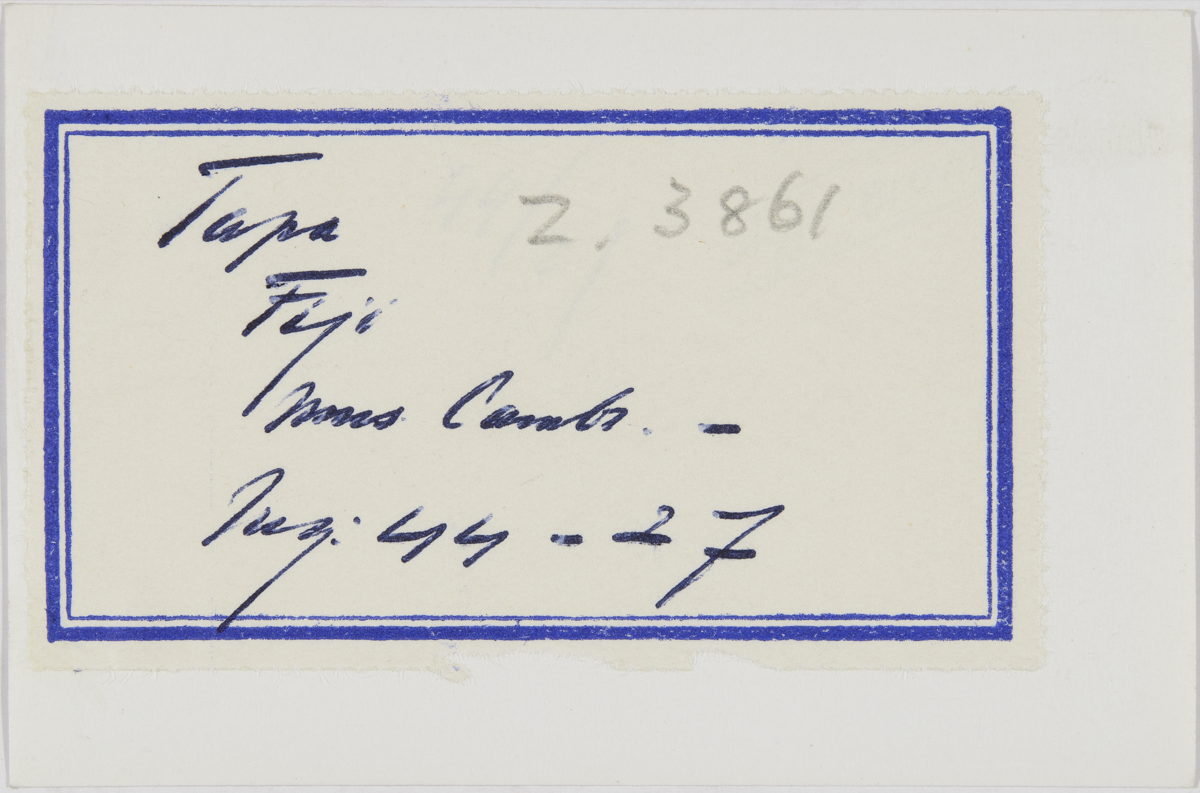 Tapa Z. 3861
Fiji
Mus Cambr. -
Neg: 44 - 27